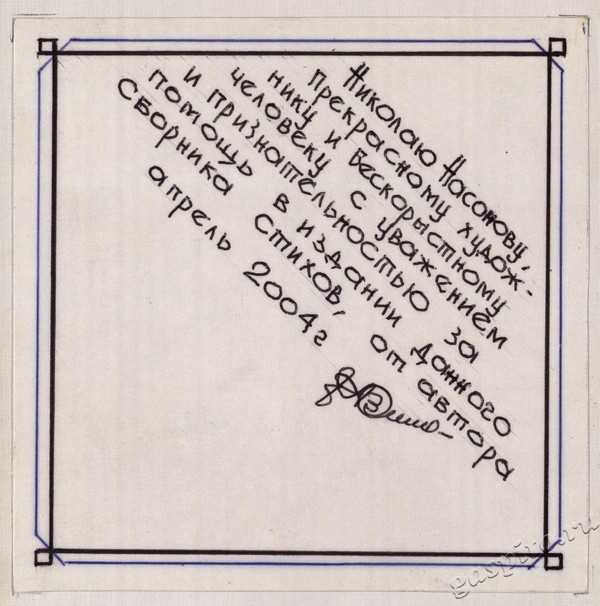 Николаю Насонову,
прекрасному худож-
нику и бескорыстному
человеку с уважением
и признательностью за
помощь в издании данного
сборника стихов, от автора
апрель 2004г
gaspiro.ru